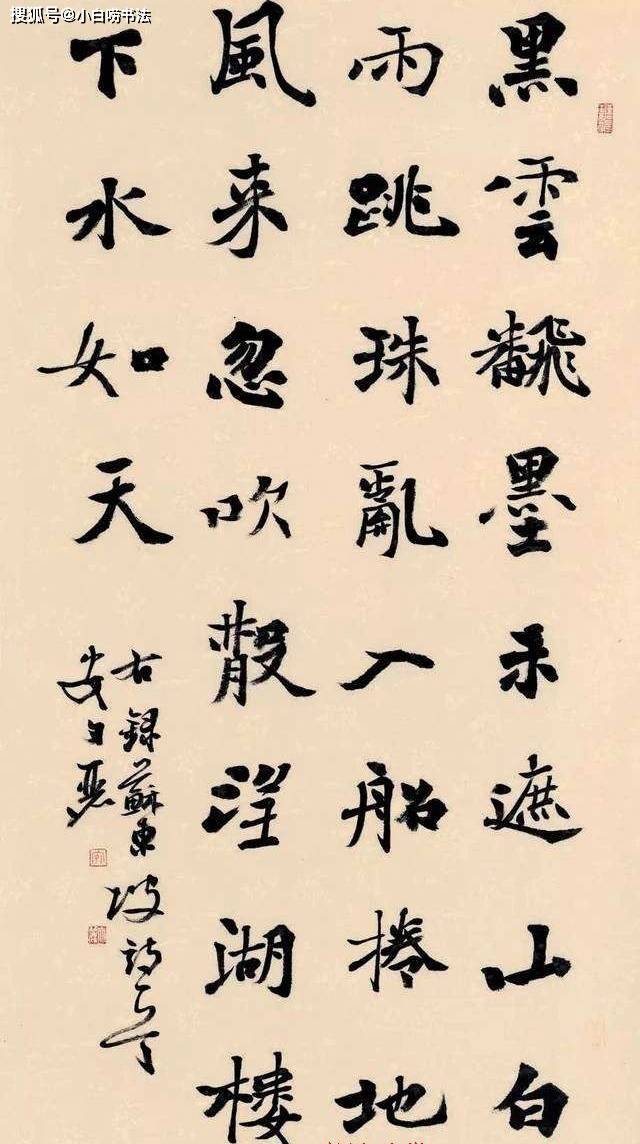 搜狐号@小白唠书法
黑雲飜墨未遮山白
雨跳珠亂入船捲地
風来忽吹散望湖樓
下水如天
右録蘇東坡詩